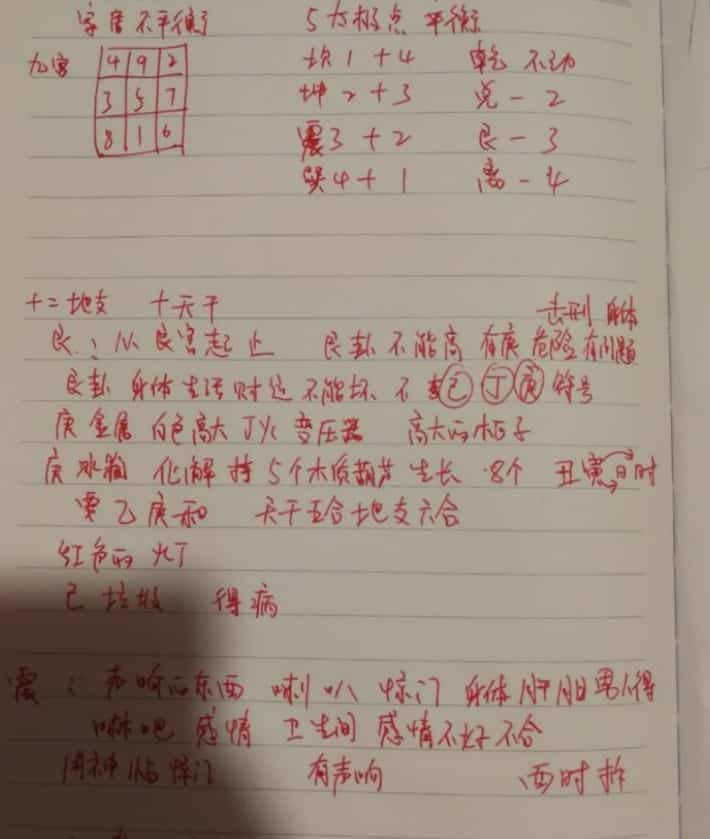 字居不平衡 5大极点 平衡
九宫 4 9 2 坎1+4 乾 不动
3 5 7 坤2+3 兑-2
8 1 6 震3+2 艮-3
巽4+1 离-4
十二地支 十天干 击刑 身体
艮：从艮宫起止 艮卦不能高 有庚危险有问题
艮卦 身体生活财运不能坏 不 己 丁 庚 符号
庚金属 白色高大 丁火 变压器 高大的柜子
庚冰箱 化解 挂5个木质葫芦 生长 8个 丑寅 时
要乙庚和 天干五合地支六合
红色的 火丁
己垃圾 得病
震：声响的东西 喇叭 惊门 身体肝胆 男人得
喇吧 感情 卫生间 感情不好不合
门神 贴 惊门 有声响 酉时拆